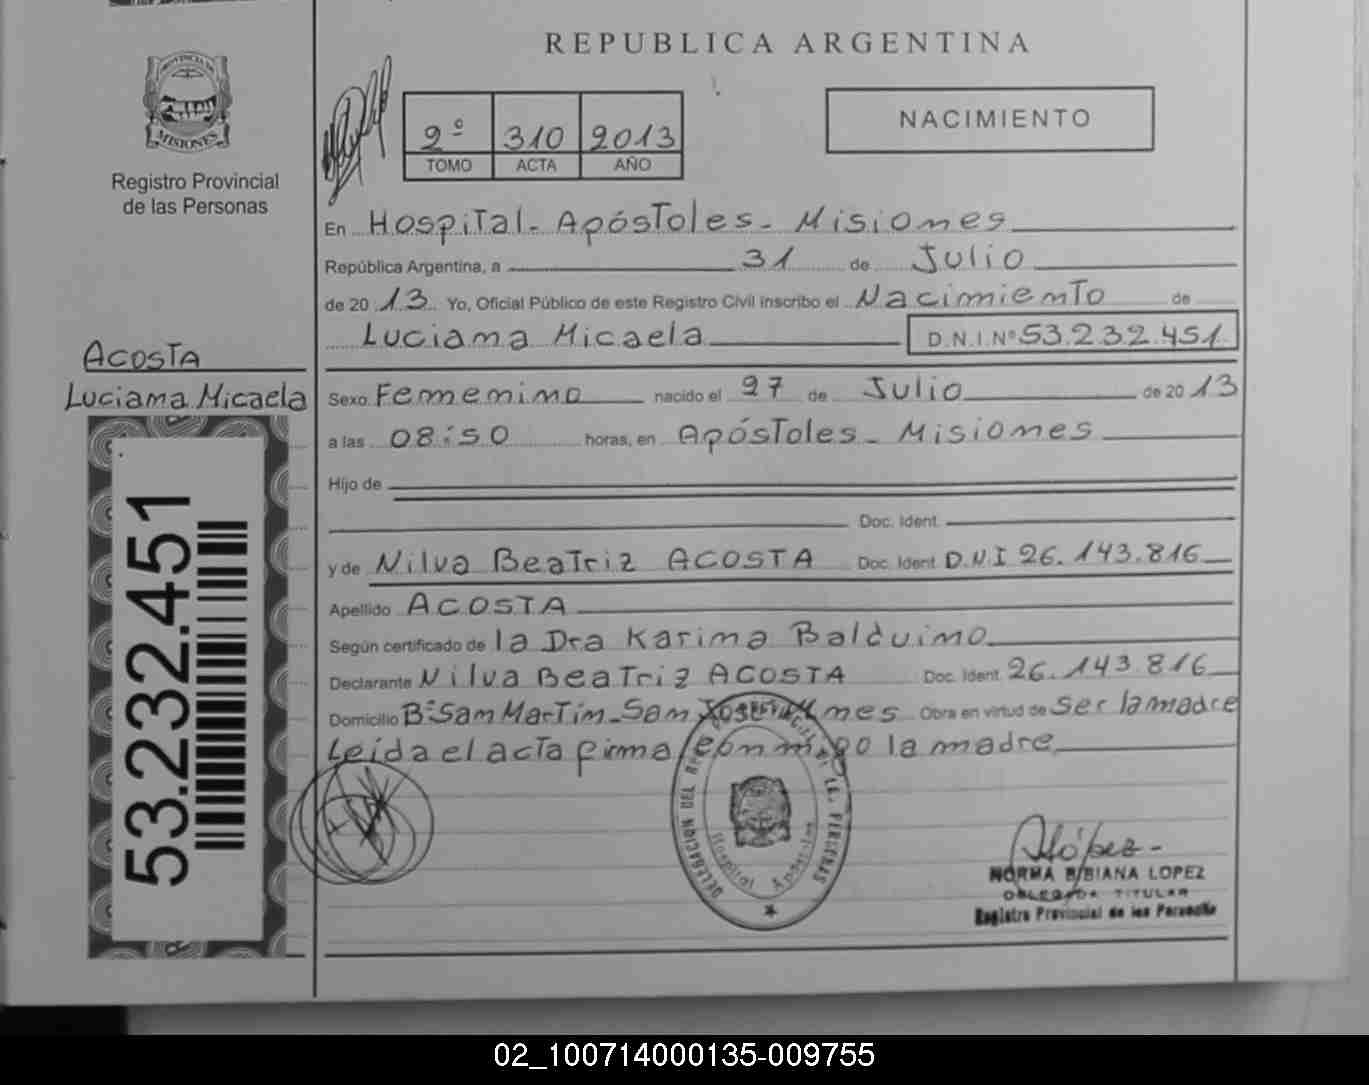 REPUBLICA ARGENTINA
PROVINCIA DE
MISIONES
Registro Provincial
de las Personas
2º 310 2013
TOMO ACTA AÑO
NACIMIENTO
En Hospital - Apóstoles - Misiones
República Argentina, a 31 de Julio
de 2013 Yo, Oficial Público de este Registro Civil inscribo el Nacimiento de
Luciana Micaela D.N.I.Nº 53.232.451
ACOSTA
Luciana Micaela
Sexo Femenino nacido el 27 de Julio de 2013
a las 08:50 horas, en Apóstoles - Misiones
Hijo de
Doc. Ident.
y de Nilva Beatriz ACOSTA Doc. Ident. D.N.I 26.143.816
Apellido ACOSTA
Según certificado de la Dra Karina Balduino
Declarante Nilva Beatriz ACOSTA Doc. Ident. 26.143.816
Domicilio Bº San Martin - San José - Mnes Obra en virtud de ser la madre
Leída el acta firma conmigo la madre
53.232.451
Hospital Apóstoles
NORMA BIBIANA LOPEZ
DELEGADA TITULAR
Registro Provincial de las Personas
02_100714000135-009755